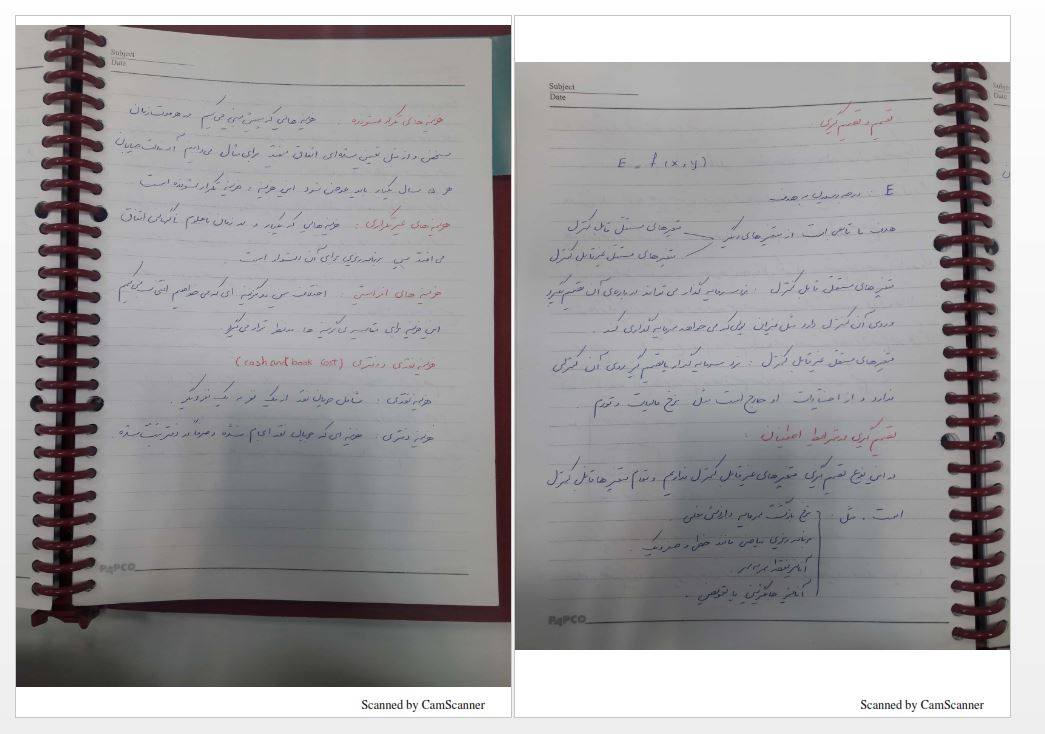 Subject
Date
هزینه های تکرار شونده : هزینه هایی که پیش بینی می کنیم در هر مدت زمان
مشخص و از قبل تعیین شده ای اتفاق میفتد برای مثال می دانیم آسفالت خیابان
هر ۵ سال یکبار باید عوض شود این هزینه ، هزینه تکرار شونده است
هزینه های غیر تکراری : هزینه هایی که یکبار و در زمان نامعلوم ناگهانی اتفاق
می افتد پس برنامه ریزی برای آن دشوار است .
هزینه های افزایشی : اختلاف بین دو گزینه ای که می خواهیم
این هزینه برای مقایسه ی گزینه ها مدنظر قرار می گیرد
هزینه نقدی و دفتری (cash and book cost)
هزینه نقدی : شامل جریان نقد از یک نفر به یک نفر دیگر .
هزینه دفتری : هزینه ای که جریان نقد انجام نشده و صرفاً در دفتر ثبت شده .
PAPCO
Scanned by CamScanner
Subject
Date
تصمیم و تصمیم گیری
E = f (x, y)
E : درجه رسیدن به هدف
هدف ما تابعی است از متغیرهای دیگر
متغیرهای مستقل قابل کنترل
متغیرهای مستقل غیر قابل کنترل
متغیرهای مستقل قابل کنترل : فرد سرمایه گذار می تواند درباره ی آن تصمیم بگیرد
و روی آن کنترل دارد مثل میزان پولی که می خواهد سرمایه گذاری کند .
متغیرهای مستقل غیر قابل کنترل : فرد سرمایه گذار یا تصمیم گیر روی آن کنترلی
ندارد و از اختیارات او خارج است مثل نرخ مالیات و تورم .
تصمیم گیری در شرایط اطمینان :
در این نوع تصمیم گیری متغیرهای غیر قابل کنترل نداریم و تمام متغیرها قابل کنترل
است . مثل :
نرخ بازگشت سرمایه و ارزش فعلی
برنامه ریزی ریاضی مانند خطی و
آنالیز نقطه سربه سر
آنالیز جایگزینی یا تعویض .
PAPCO
Scanned by CamScanner